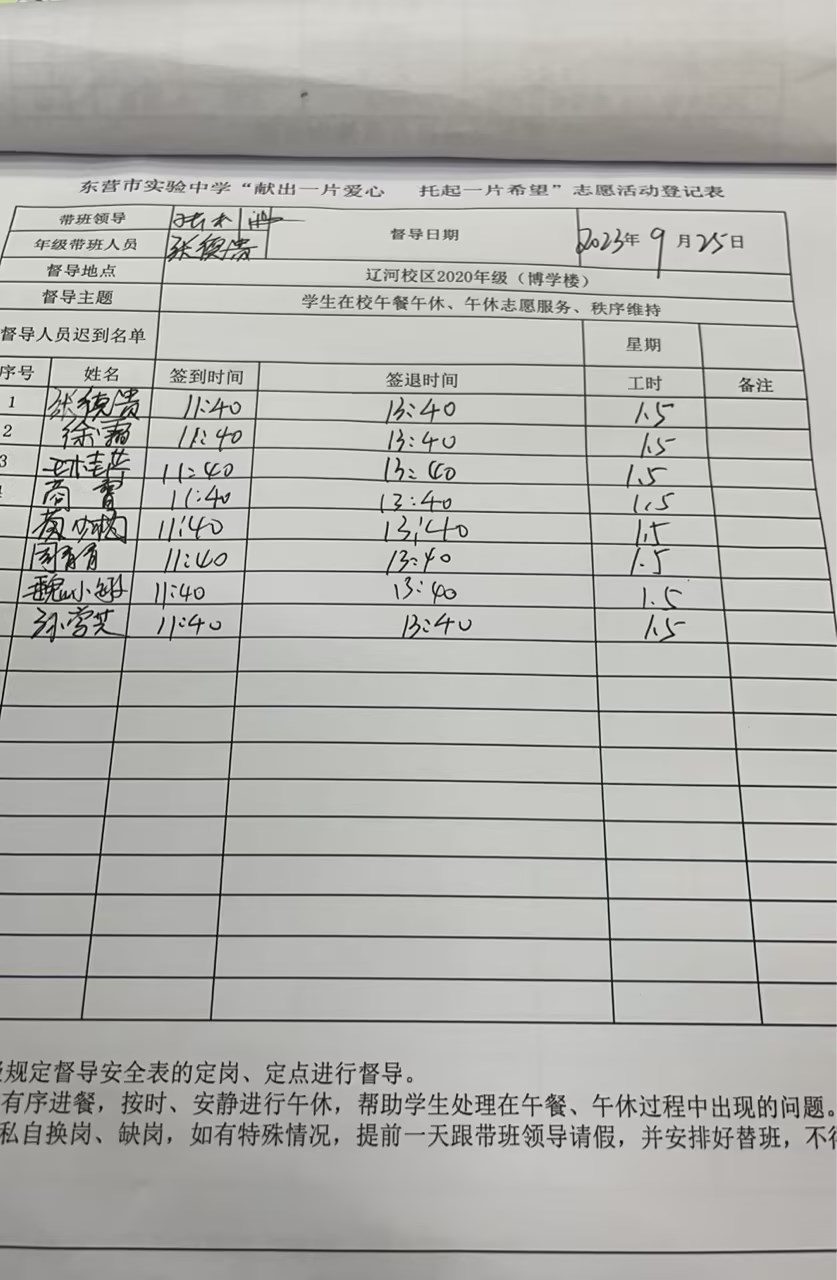 东营市实验中学“献出一片爱心 托起一片希望”志愿活动登记表
带班领导
年级带班人员 张德贵 督导日期 2023年9月25日
督导地点 辽河校区2020年级（博学楼）
督导主题 学生在校午餐午休、午休志愿服务、秩序维持
督导人员迟到名单 星期
序号 姓名 签到时间 签退时间 工时 备注
1 张德贵 11:40 13:40 1.5
2 徐霜 11:40 13:40 1.5
3 11:40 13:40 1.5
11:40 13:40 1.5
11:40 13:40 1.5
周青青 11:40 13:40 1.5
魏小敏 11:40 13:40 1.5
孙雪芝 11:40 13:40 1.5
规定督导安全表的定岗、定点进行督导。
有序进餐，按时、安静进行午休，帮助学生处理在午餐、午休过程中出现的问题。
私自换岗、缺岗，如有特殊情况，提前一天跟带班领导请假，并安排好替班，不得